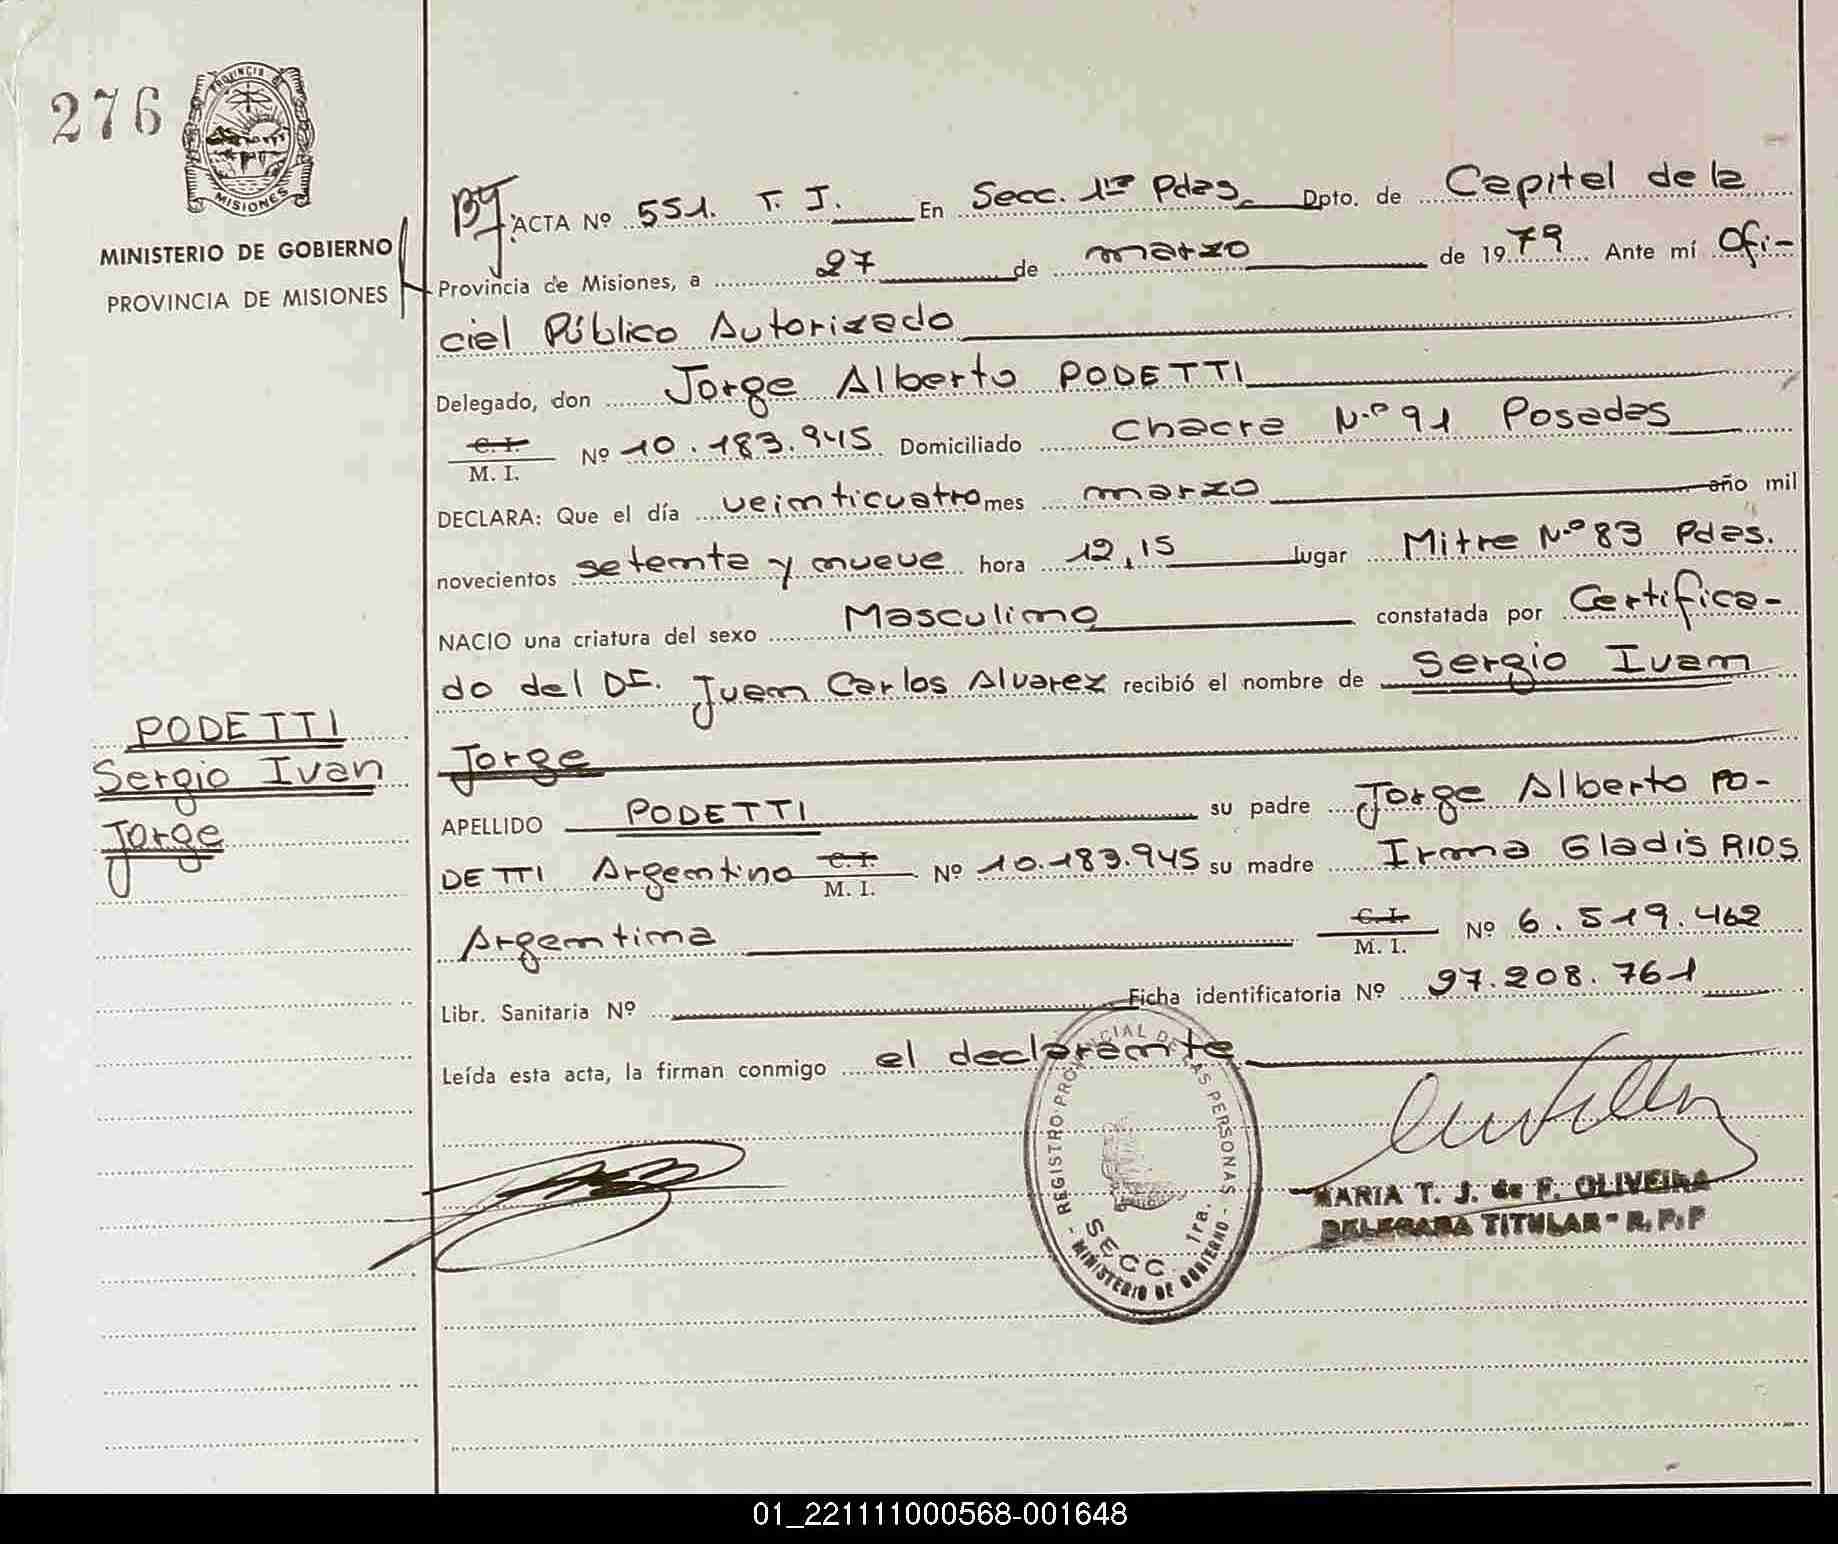 276
PROVINCIA DE
MISIONES
MINISTERIO DE GOBIERNO
PROVINCIA DE MISIONES
ACTA Nº 551. T. J. En Secc. 1ra Pdas. Dpto. de Capital de la
Provincia de Misiones, a 27 de marzo de 1979 Ante mí Ofi-
cial Público Autorizado
Delegado, don Jorge Alberto PODETTI
C. I.
M. I. Nº 10.183.945 Domiciliado Chacra N.º 91 Posadas
DECLARA: Que el día veinticuatro mes marzo año mil
novecientos setenta y nueve hora 12,15 lugar Mitre N.º 83 Pdas.
NACIO una criatura del sexo Masculino constatada por Certifica-
do del Dr. Juan Carlos Alvarez recibió el nombre de Sergio Ivan
Jorge
APELLIDO PODETTI su padre Jorge Alberto PO-
DETTI Argentino C. I. M. I. Nº 10.183.945 su madre Irma Gladis RIOS
Argentina C. I. M. I. Nº 6.519.462
Libr. Sanitaria Nº Ficha identificatoria Nº 97.208.761
Leída esta acta, la firman conmigo el declarante
PODETTI
Sergio Ivan
Jorge
REGISTRO PROVINCIAL DE LAS PERSONAS
SECC. 1ra.
MINISTERIO DE GOBIERNO
MARIA T. J. de F. OLIVEIRA
DELEGADA TITULAR - R. P. P
01_221111000568-001648